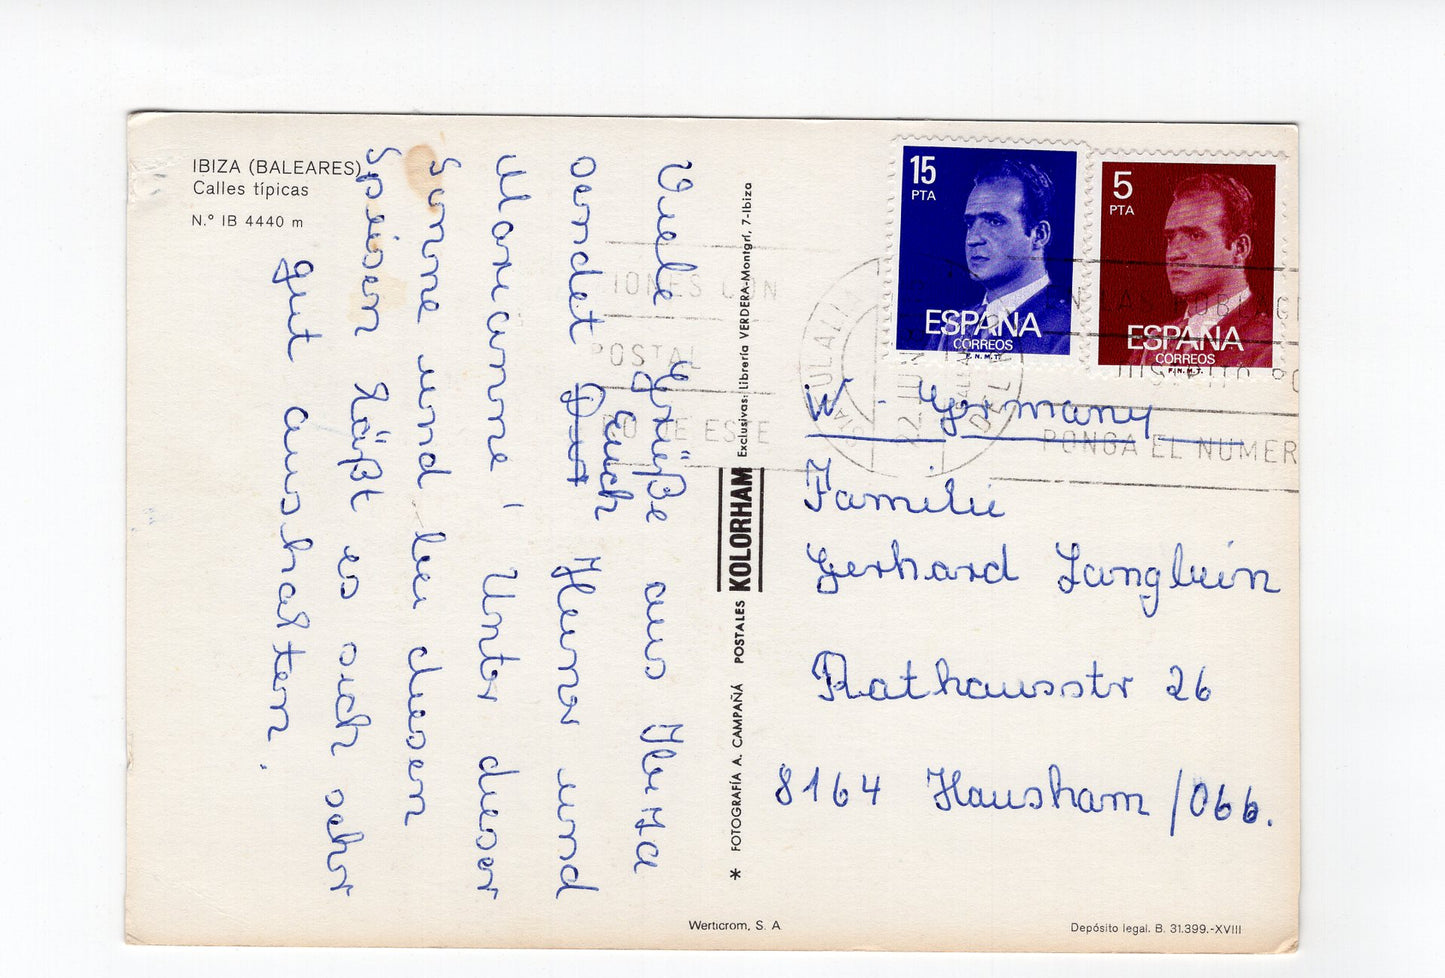 IBIZA (BALEARES)
Calles típicas
N.º IB 4440 m
Viele Grüße aus Ibiza
sendet Dut Euch Heiner und
Marianne! Unter dieser
Sonne und bei diesen
Speisen läßt es sich sehr
gut aushalten.
* FOTOGRAFÍA A. CAMPAÑÁ POSTALES KOLORHAM Exclusivas: Librería VERDERA-Montgrí, 7-Ibiza
15
PTA
ESPAÑA
CORREOS
F.N.M.T.
5
PTA
ESPAÑA
CORREOS
F.N.M.T.
IONES CON
POSTAL
ESTE
PONGA EL NUMER
W-Germany
Familie
Gerhard Langlein
Rathausstr 26
8164 Hausham /Obb.
Werticrom, S. A
Depósito legal. B. 31.399.-XVIII